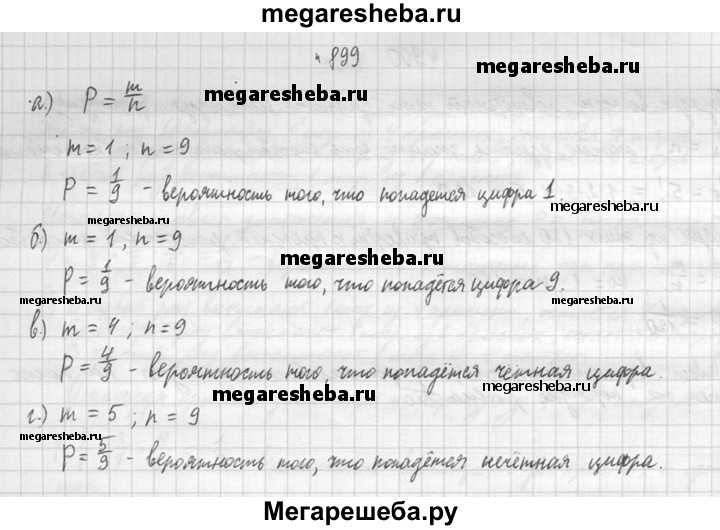 megaresheba.ru
№ 899
а.) P = m/n megaresheba.ru
m = 1 ; n = 9
P = 1/9 - вероятность того, что попадется цифра 1.
megaresheba.ru megaresheba.ru
б.) m = 1, n = 9
megaresheba.ru
P = 1/9 - вероятность того, что попадётся цифра 9.
megaresheba.ru megaresheba.ru
в.) m = 4 ; n = 9
P = 4/9 - вероятность того, что попадётся чётная цифра.
megaresheba.ru megaresheba.ru
г.) m = 5 ; n = 9
megaresheba.ru
P = 5/9 - вероятность того, что попадётся нечётная цифра.
Мегарешеба.ру